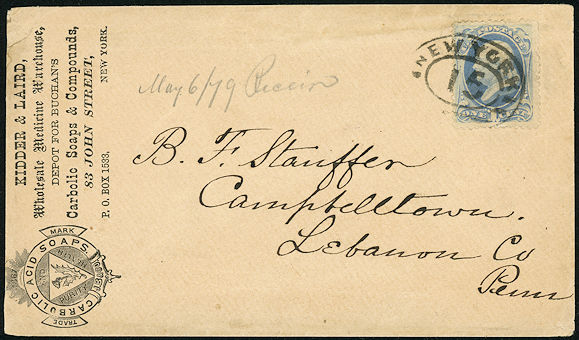 KIDDER & LAIRD,
Wholesale Medicine Warehouse,
DEPOT FOR BUCHAN'S
Carbolic Soaps & Compounds,
83 JOHN STREET,
P. O. BOX 1533. NEW YORK.
MARK
CARBOLIC ACID SOAPS
PURITY
TRADE
May 6/79
NEW YORK
15
POSTAGE
B. F. Stauffer
Campbelltown.
Lebanon Co
Penn